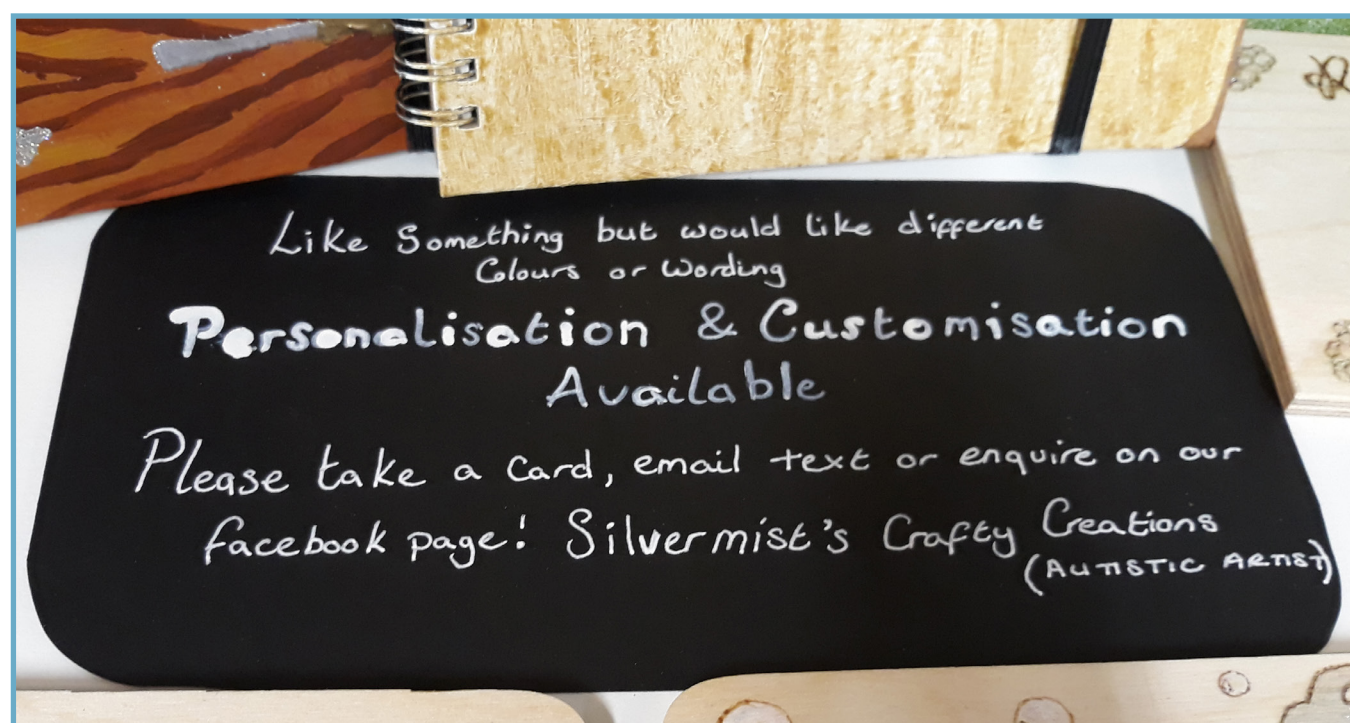 Like Something but would like different
Colours or Wording
Personalisation & Customisation
Available
Please take a Card, email text or enquire on our
facebook page! Silvermist's Crafty Creations
(AUTISTIC ARTIST)